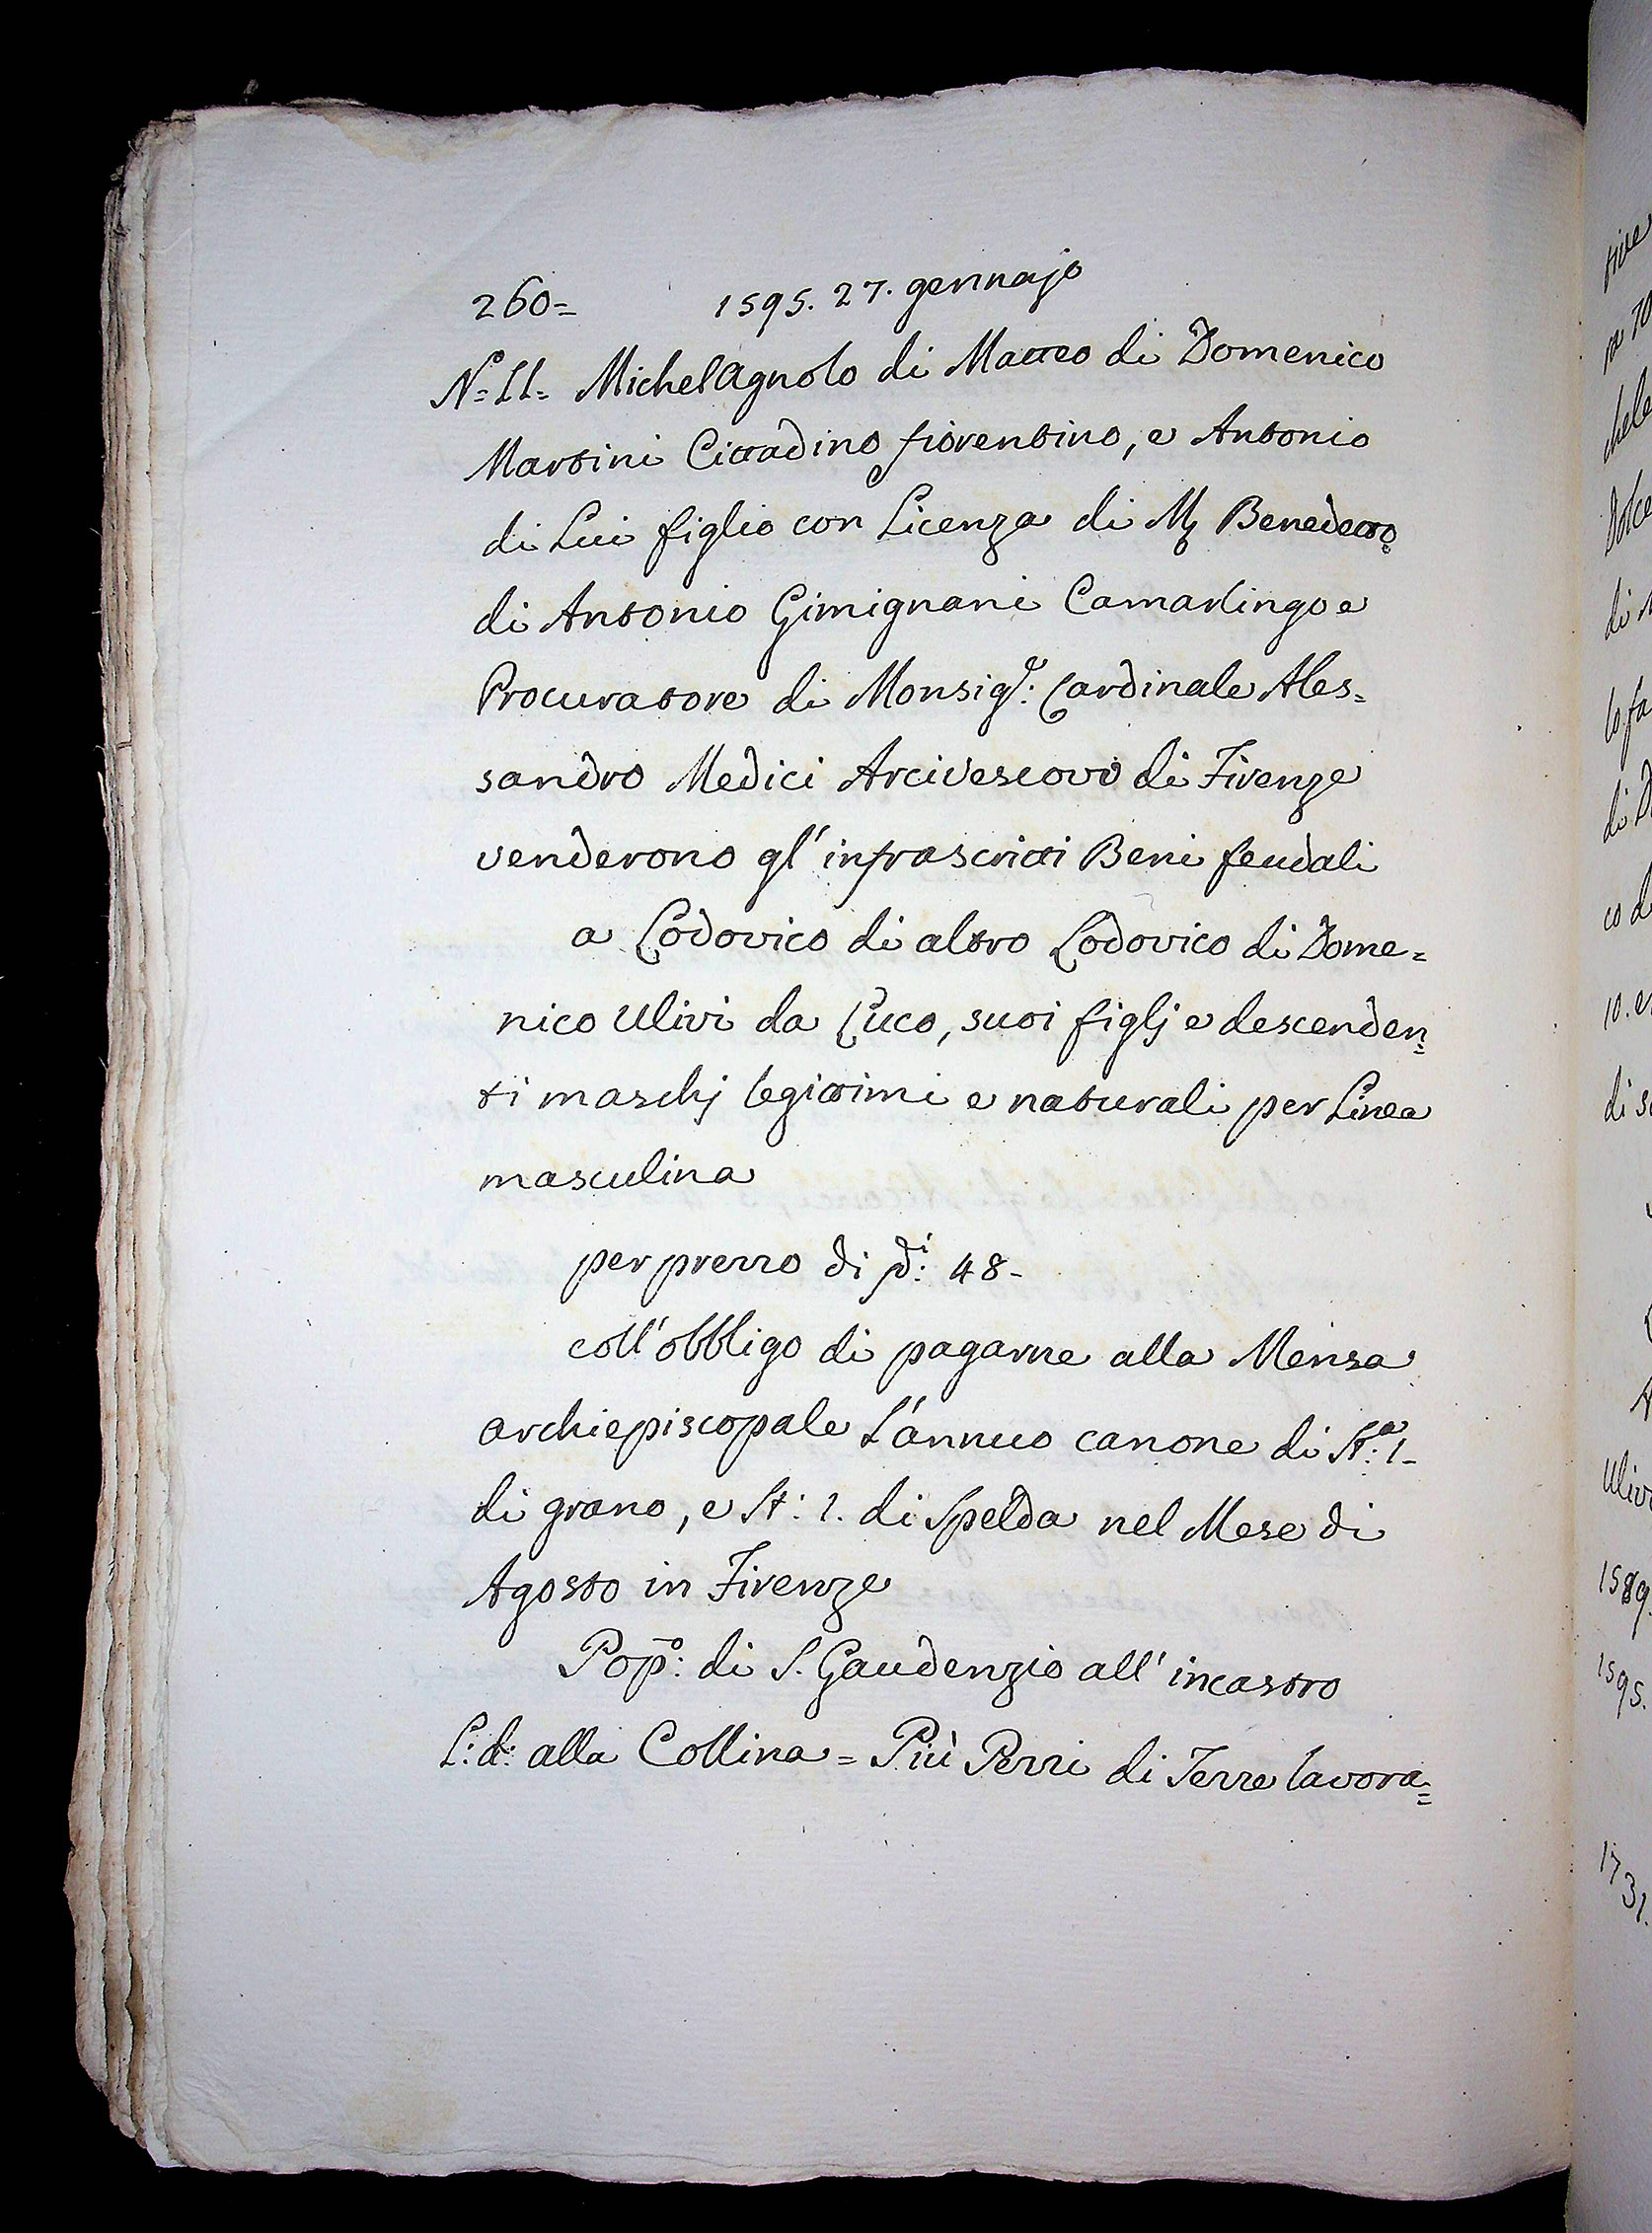 260= 1595. 27. gennajo
N=11= MichelAgnolo di Matteo di Domenico
Martini Cittadino fiorentino, e Antonio
di Lui figlio con Licenza di Mẞ Benedetto
di Antonio Gimignani Camarlingo e
Procuratore di Monsigr: Cardinale Ales=
sandro Medici Arcivescovo di Firenze
venderono gl'infrascritti Beni feudali
a Lodovico di altro Lodovico di Dome=
nico Ulivi da Luco, suoi figlj e descenden=
ti maschj legittimi e naturali per Linea
masculina
per prezzo di di: 48-
coll'obbligo di pagarne alla Mensa
archiepiscopale L'annuo canone di Sta: 1-
di grano, e St: 1. di Spelda nel Mese di
Agosto in Firenze
Popo: di S. Gaudenzio all'incastro
L: d: alla Collina = Più Pezzi di Terre lavora=
Ulivi
1589.
1595.
1731.